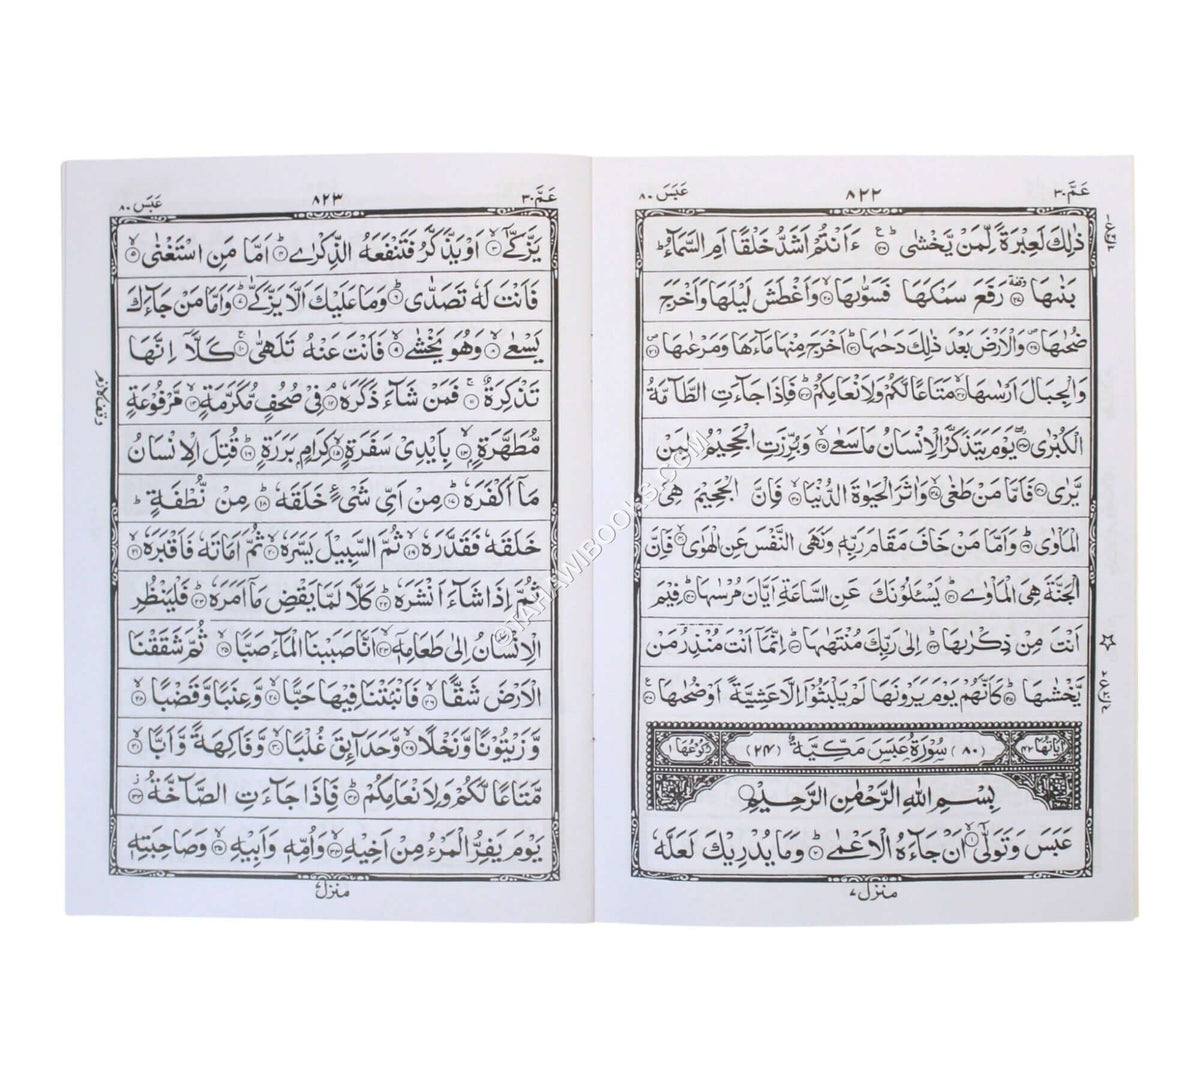 عَمَّ ٣٠
٨٢٢
عَبَسَ ٨٠
ذٰلِكَ لَعِبْرَةً لِّمَنْ يَّخْشٰى ؕ۝۲۶ ءَاَنْتُمْ اَشَدُّ خَلْقًا اَمِ السَّمَآءُ ؕ
بَنٰىهَا ۝۲۷ رَفَعَ سَمْكَهَا فَسَوّٰىهَا ۙ۝۲۸ وَاَغْطَشَ لَيْلَهَا وَاَخْرَجَ
ضُحٰىهَا ۪۝۲۹ وَالْاَرْضَ بَعْدَ ذٰلِكَ دَحٰىهَا ؕ۝۳۰ اَخْرَجَ مِنْهَا مَآءَهَا وَمَرْعٰىهَا ۪۝۳۱
وَالْجِبَالَ اَرْسٰىهَا ۙ۝۳۲ مَتَاعًا لَّكُمْ وَلِاَنْعَامِكُمْ ؕ۝۳۳ فَاِذَا جَآءَتِ الطَّآمَّةُ
الْكُبْرٰى ۖ۝۳۴ يَوْمَ يَتَذَكَّرُ الْاِنْسَانُ مَا سَعٰى ۙ۝۳۵ وَبُرِّزَتِ الْجَحِيْمُ لِمَنْ
يَّرٰى ۝۳۶ فَاَمَّا مَنْ طَغٰى ۙ۝۳۷ وَاٰثَرَ الْحَيٰوةَ الدُّنْيَا ۙ۝۳۸ فَاِنَّ الْجَحِيْمَ هِىَ
الْمَاْوٰى ؕ۝۳۹ وَاَمَّا مَنْ خَافَ مَقَامَ رَبِّهٖ وَنَهَى النَّفْسَ عَنِ الْهَوٰى ۙ۝۴۰ فَاِنَّ
الْجَنَّةَ هِىَ الْمَاْوٰى ؕ۝۴۱ يَسْـَٔلُوْنَكَ عَنِ السَّاعَةِ اَيَّانَ مُرْسٰىهَا ؕ۝۴۲ فِيْمَ
اَنْتَ مِنْ ذِكْرٰىهَا ؕ۝۴۳ اِلٰى رَبِّكَ مُنْتَهٰىهَا ؕ۝۴۴ اِنَّمَآ اَنْتَ مُنْذِرُ مَنْ
يَّخْشٰىهَا ؕ۝۴۵ كَاَنَّهُمْ يَوْمَ يَرَوْنَهَا لَمْ يَلْبَثُوْٓا اِلَّا عَشِيَّةً اَوْ ضُحٰىهَا ۝۴۶
اٰيَاتُهَا ٤٢ (٨٠) سُوْرَةُ عَبَسَ مَكِّيَّةٌ (٢٤) رُكُوْعُهَا ١
بِسْمِ اللّٰهِ الرَّحْمٰنِ الرَّحِيْمِ
عَبَسَ وَتَوَلّٰٓى ۙ۝۱ اَنْ جَآءَهُ الْاَعْمٰى ؕ۝۲ وَمَا يُدْرِيْكَ لَعَلَّهٗ
منزل ٧
عَمَّ ٣٠
٨٢٣
عَبَسَ ٨٠
يَزَّكّٰٓى ۙ۝۳ اَوْ يَذَّكَّرُ فَتَنْفَعَهُ الذِّكْرٰى ؕ۝۴ اَمَّا مَنِ اسْتَغْنٰى ۙ۝۵
فَاَنْتَ لَهٗ تَصَدّٰى ؕ۝۶ وَمَا عَلَيْكَ اَلَّا يَزَّكّٰى ؕ۝۷ وَاَمَّا مَنْ جَآءَكَ
يَسْعٰى ۙ۝۸ وَهُوَ يَخْشٰى ۙ۝۹ فَاَنْتَ عَنْهُ تَلَهّٰى ۚ۝۱۰ كَلَّآ اِنَّهَا
تَذْكِرَةٌ ۚ۝۱۱ فَمَنْ شَآءَ ذَكَرَهٗ ۘ۝۱۲ فِىْ صُحُفٍ مُّكَرَّمَةٍ ۙ۝۱۳ مَّرْفُوْعَةٍ
مُّطَهَّرَةٍ ۙ۝۱۴ بِاَيْدِىْ سَفَرَةٍ ۙ۝۱۵ كِرَامٍ بَرَرَةٍ ؕ۝۱۶ قُتِلَ الْاِنْسَانُ
مَآ اَكْفَرَهٗ ؕ۝۱۷ مِنْ اَىِّ شَىْءٍ خَلَقَهٗ ؕ۝۱۸ مِنْ نُّطْفَةٍ ؕ
خَلَقَهٗ فَقَدَّرَهٗ ۙ۝۱۹ ثُمَّ السَّبِيْلَ يَسَّرَهٗ ۙ۝۲۰ ثُمَّ اَمَاتَهٗ فَاَقْبَرَهٗ ۙ۝۲۱
ثُمَّ اِذَا شَآءَ اَنْشَرَهٗ ؕ۝۲۲ كَلَّا لَمَّا يَقْضِ مَآ اَمَرَهٗ ؕ۝۲۳ فَلْيَنْظُرِ
الْاِنْسَانُ اِلٰى طَعَامِهٖٓ ۙ۝۲۴ اَنَّا صَبَبْنَا الْمَآءَ صَبًّا ۙ۝۲۵ ثُمَّ شَقَقْنَا
الْاَرْضَ شَقًّا ۙ۝۲۶ فَاَنْۢبَتْنَا فِيْهَا حَبًّا ۙ۝۲۷ وَّعِنَبًا وَّقَضْبًا ۙ۝۲۸
وَّزَيْتُوْنًا وَّنَخْلًا ۙ۝۲۹ وَّحَدَآئِقَ غُلْبًا ۙ۝۳۰ وَّفَاكِهَةً وَّاَبًّا ۙ۝۳۱
مَّتَاعًا لَّكُمْ وَلِاَنْعَامِكُمْ ؕ۝۳۲ فَاِذَا جَآءَتِ الصَّآخَّةُ ۝۳۳
يَوْمَ يَفِرُّ الْمَرْءُ مِنْ اَخِيْهِ ۙ۝۳۴ وَاُمِّهٖ وَاَبِيْهِ ۙ۝۳۵ وَصَاحِبَتِهٖ
منزل ٧
©TAHAWIBOOKS.COM